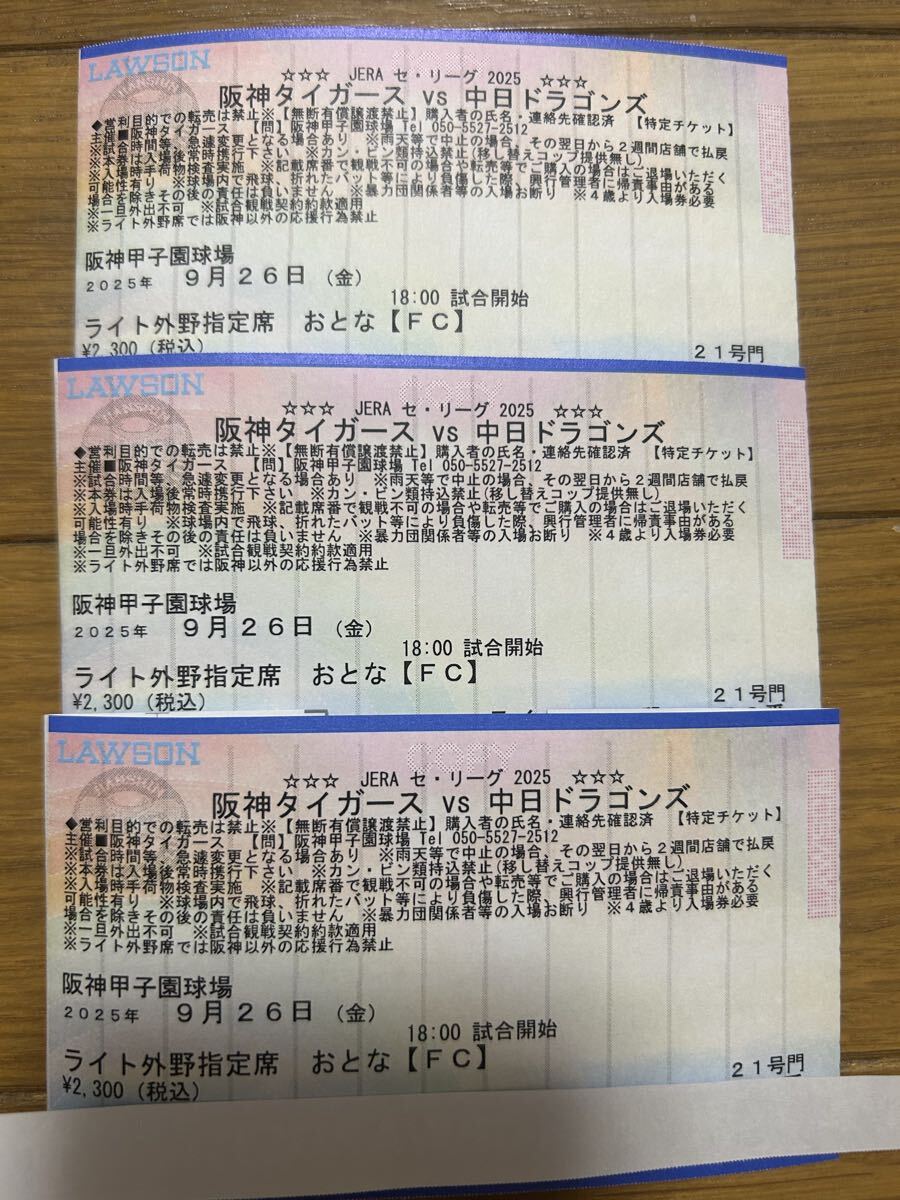 LAWSON
☆☆☆ JERA セ・リーグ 2025 ☆☆☆
阪神タイガース vs 中日ドラゴンズ
◆営利目的での転売は禁止※【無断有償譲渡禁止】購入者の氏名・連絡先確認済 【特定チケット】
主催■阪神タイガース 【問】阪神甲子園球場 Tel 050-5527-2512
※試合時間等、急遽変更となる場合あり ※雨天等で中止の場合、その翌日から2週間店舗で払戻
※本券は入場後常時携行下さい ※カン・ビン類持込禁止(移し替えコップ提供無し)
※入場時手荷物検査実施 ※記載席番で観戦不可の場合や転売等でご購入の場合はご退場いただく
可能性有り ※球場内で飛球、折れたバット等により負傷した際、興行管理者に帰責事由がある
場合を除きその後の責任は負いません ※暴力団関係者等の入場お断り ※4歳より入場券必要
※一旦外出不可 ※試合観戦契約約款適用
※ライト外野席では阪神以外の応援行為禁止
阪神甲子園球場
2025年 9月26日 (金)
18:00 試合開始
ライト外野指定席 おとな【FC】
¥2,300 (税込)
21号門
LAWSON
☆☆☆ JERA セ・リーグ 2025 ☆☆☆
阪神タイガース vs 中日ドラゴンズ
◆営利目的での転売は禁止※【無断有償譲渡禁止】購入者の氏名・連絡先確認済 【特定チケット】
主催■阪神タイガース 【問】阪神甲子園球場 Tel 050-5527-2512
※試合時間等、急遽変更となる場合あり ※雨天等で中止の場合、その翌日から2週間店舗で払戻
※本券は入場後常時携行下さい ※カン・ビン類持込禁止(移し替えコップ提供無し)
※入場時手荷物検査実施 ※記載席番で観戦不可の場合や転売等でご購入の場合はご退場いただく
可能性有り ※球場内で飛球、折れたバット等により負傷した際、興行管理者に帰責事由がある
場合を除きその後の責任は負いません ※暴力団関係者等の入場お断り ※4歳より入場券必要
※一旦外出不可 ※試合観戦契約約款適用
※ライト外野席では阪神以外の応援行為禁止
阪神甲子園球場
2025年 9月26日 (金)
18:00 試合開始
ライト外野指定席 おとな【FC】
¥2,300 (税込)
21号門
LAWSON
☆☆☆ JERA セ・リーグ 2025 ☆☆☆
阪神タイガース vs 中日ドラゴンズ
◆営利目的での転売は禁止※【無断有償譲渡禁止】購入者の氏名・連絡先確認済 【特定チケット】
主催■阪神タイガース 【問】阪神甲子園球場 Tel 050-5527-2512
※試合時間等、急遽変更となる場合あり ※雨天等で中止の場合、その翌日から2週間店舗で払戻
※本券は入場後常時携行下さい ※カン・ビン類持込禁止(移し替えコップ提供無し)
※入場時手荷物検査実施 ※記載席番で観戦不可の場合や転売等でご購入の場合はご退場いただく
可能性有り ※球場内で飛球、折れたバット等により負傷した際、興行管理者に帰責事由がある
場合を除きその後の責任は負いません ※暴力団関係者等の入場お断り ※4歳より入場券必要
※一旦外出不可 ※試合観戦契約約款適用
※ライト外野席では阪神以外の応援行為禁止
阪神甲子園球場
2025年 9月26日 (金)
18:00 試合開始
ライト外野指定席 おとな【FC】
¥2,300 (税込)
21号門